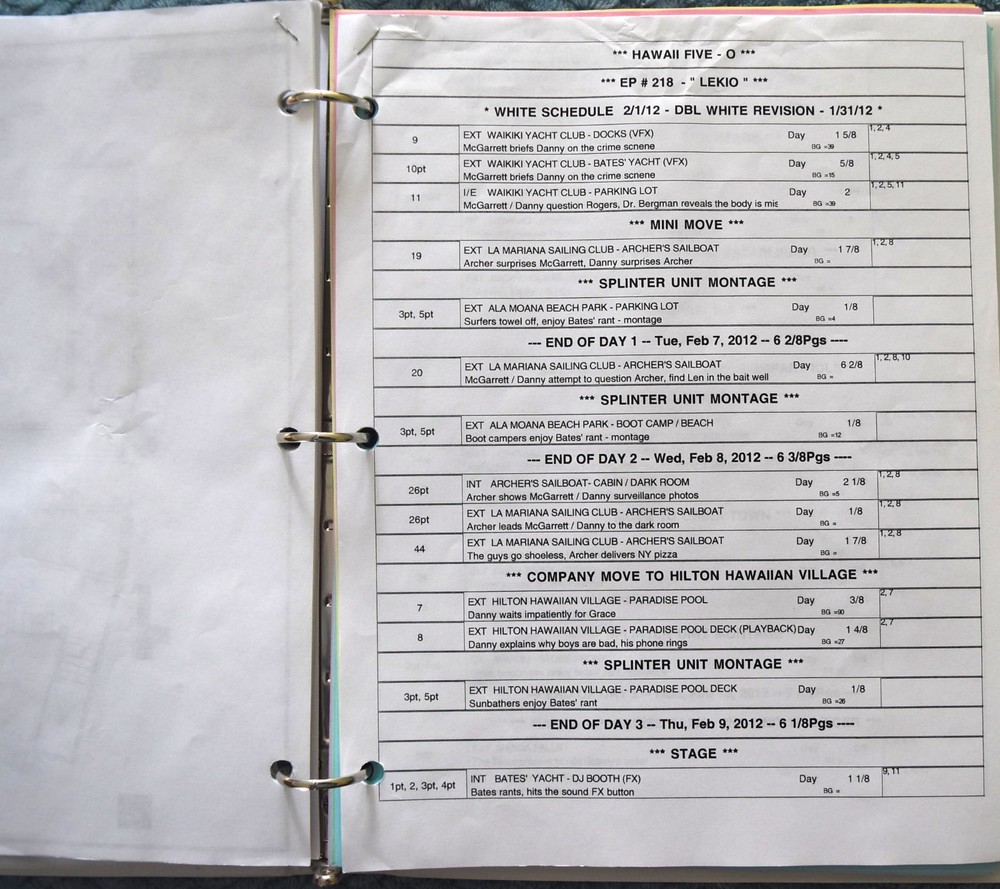 *** HAWAII FIVE - O ***
*** EP # 218 - " LEKIO " ***
* WHITE SCHEDULE 2/1/12 - DBL WHITE REVISION - 1/31/12 *
9 EXT WAIKIKI YACHT CLUB - DOCKS (VFX) Day 1 5/8 1, 2, 4
McGarrett briefs Danny on the crime scnene BG =39
10pt EXT WAIKIKI YACHT CLUB - BATES' YACHT (VFX) Day 5/8 1, 2, 4, 5
McGarrett briefs Danny on the crime scnene BG =15
11 I/E WAIKIKI YACHT CLUB - PARKING LOT Day 2 1, 2, 5, 11
McGarrett / Danny question Rogers, Dr. Bergman reveals the body is mis BG =39
*** MINI MOVE ***
19 EXT LA MARIANA SAILING CLUB - ARCHER'S SAILBOAT Day 1 7/8 1, 2, 8
Archer surprises McGarrett, Danny surprises Archer BG =
*** SPLINTER UNIT MONTAGE ***
3pt, 5pt EXT ALA MOANA BEACH PARK - PARKING LOT Day 1/8
Surfers towel off, enjoy Bates' rant - montage BG =4
--- END OF DAY 1 -- Tue, Feb 7, 2012 -- 6 2/8Pgs ----
20 EXT LA MARIANA SAILING CLUB - ARCHER'S SAILBOAT Day 6 2/8 1, 2, 8, 10
McGarrett / Danny attempt to question Archer, find Len in the bait well BG =
*** SPLINTER UNIT MONTAGE ***
3pt, 5pt EXT ALA MOANA BEACH PARK - BOOT CAMP / BEACH 1/8
Boot campers enjoy Bates' rant - montage BG =12
--- END OF DAY 2 -- Wed, Feb 8, 2012 -- 6 3/8Pgs ----
26pt INT ARCHER'S SAILBOAT- CABIN / DARK ROOM Day 2 1/8 1, 2, 8
Archer shows McGarrett / Danny surveillance photos BG =5
26pt EXT LA MARIANA SAILING CLUB - ARCHER'S SAILBOAT Day 1/8 1, 2, 8
Archer leads McGarrett / Danny to the dark room BG =
44 EXT LA MARIANA SAILING CLUB - ARCHER'S SAILBOAT Day 1 7/8 1, 2, 8
The guys go shoeless, Archer delivers NY pizza BG =
*** COMPANY MOVE TO HILTON HAWAIIAN VILLAGE ***
7 EXT HILTON HAWAIIAN VILLAGE - PARADISE POOL Day 3/8 2, 7
Danny waits impatiently for Grace BG =90
8 EXT HILTON HAWAIIAN VILLAGE - PARADISE POOL DECK (PLAYBACK) Day 1 4/8 2, 7
Danny explains why boys are bad, his phone rings BG =27
*** SPLINTER UNIT MONTAGE ***
3pt, 5pt EXT HILTON HAWAIIAN VILLAGE - PARADISE POOL DECK Day 1/8
Sunbathers enjoy Bates' rant BG =26
--- END OF DAY 3 -- Thu, Feb 9, 2012 -- 6 1/8Pgs ----
*** STAGE ***
1pt, 2, 3pt, 4pt INT BATES' YACHT - DJ BOOTH (FX) Day 1 1/8 9, 11
Bates rants, hits the sound FX button BG =